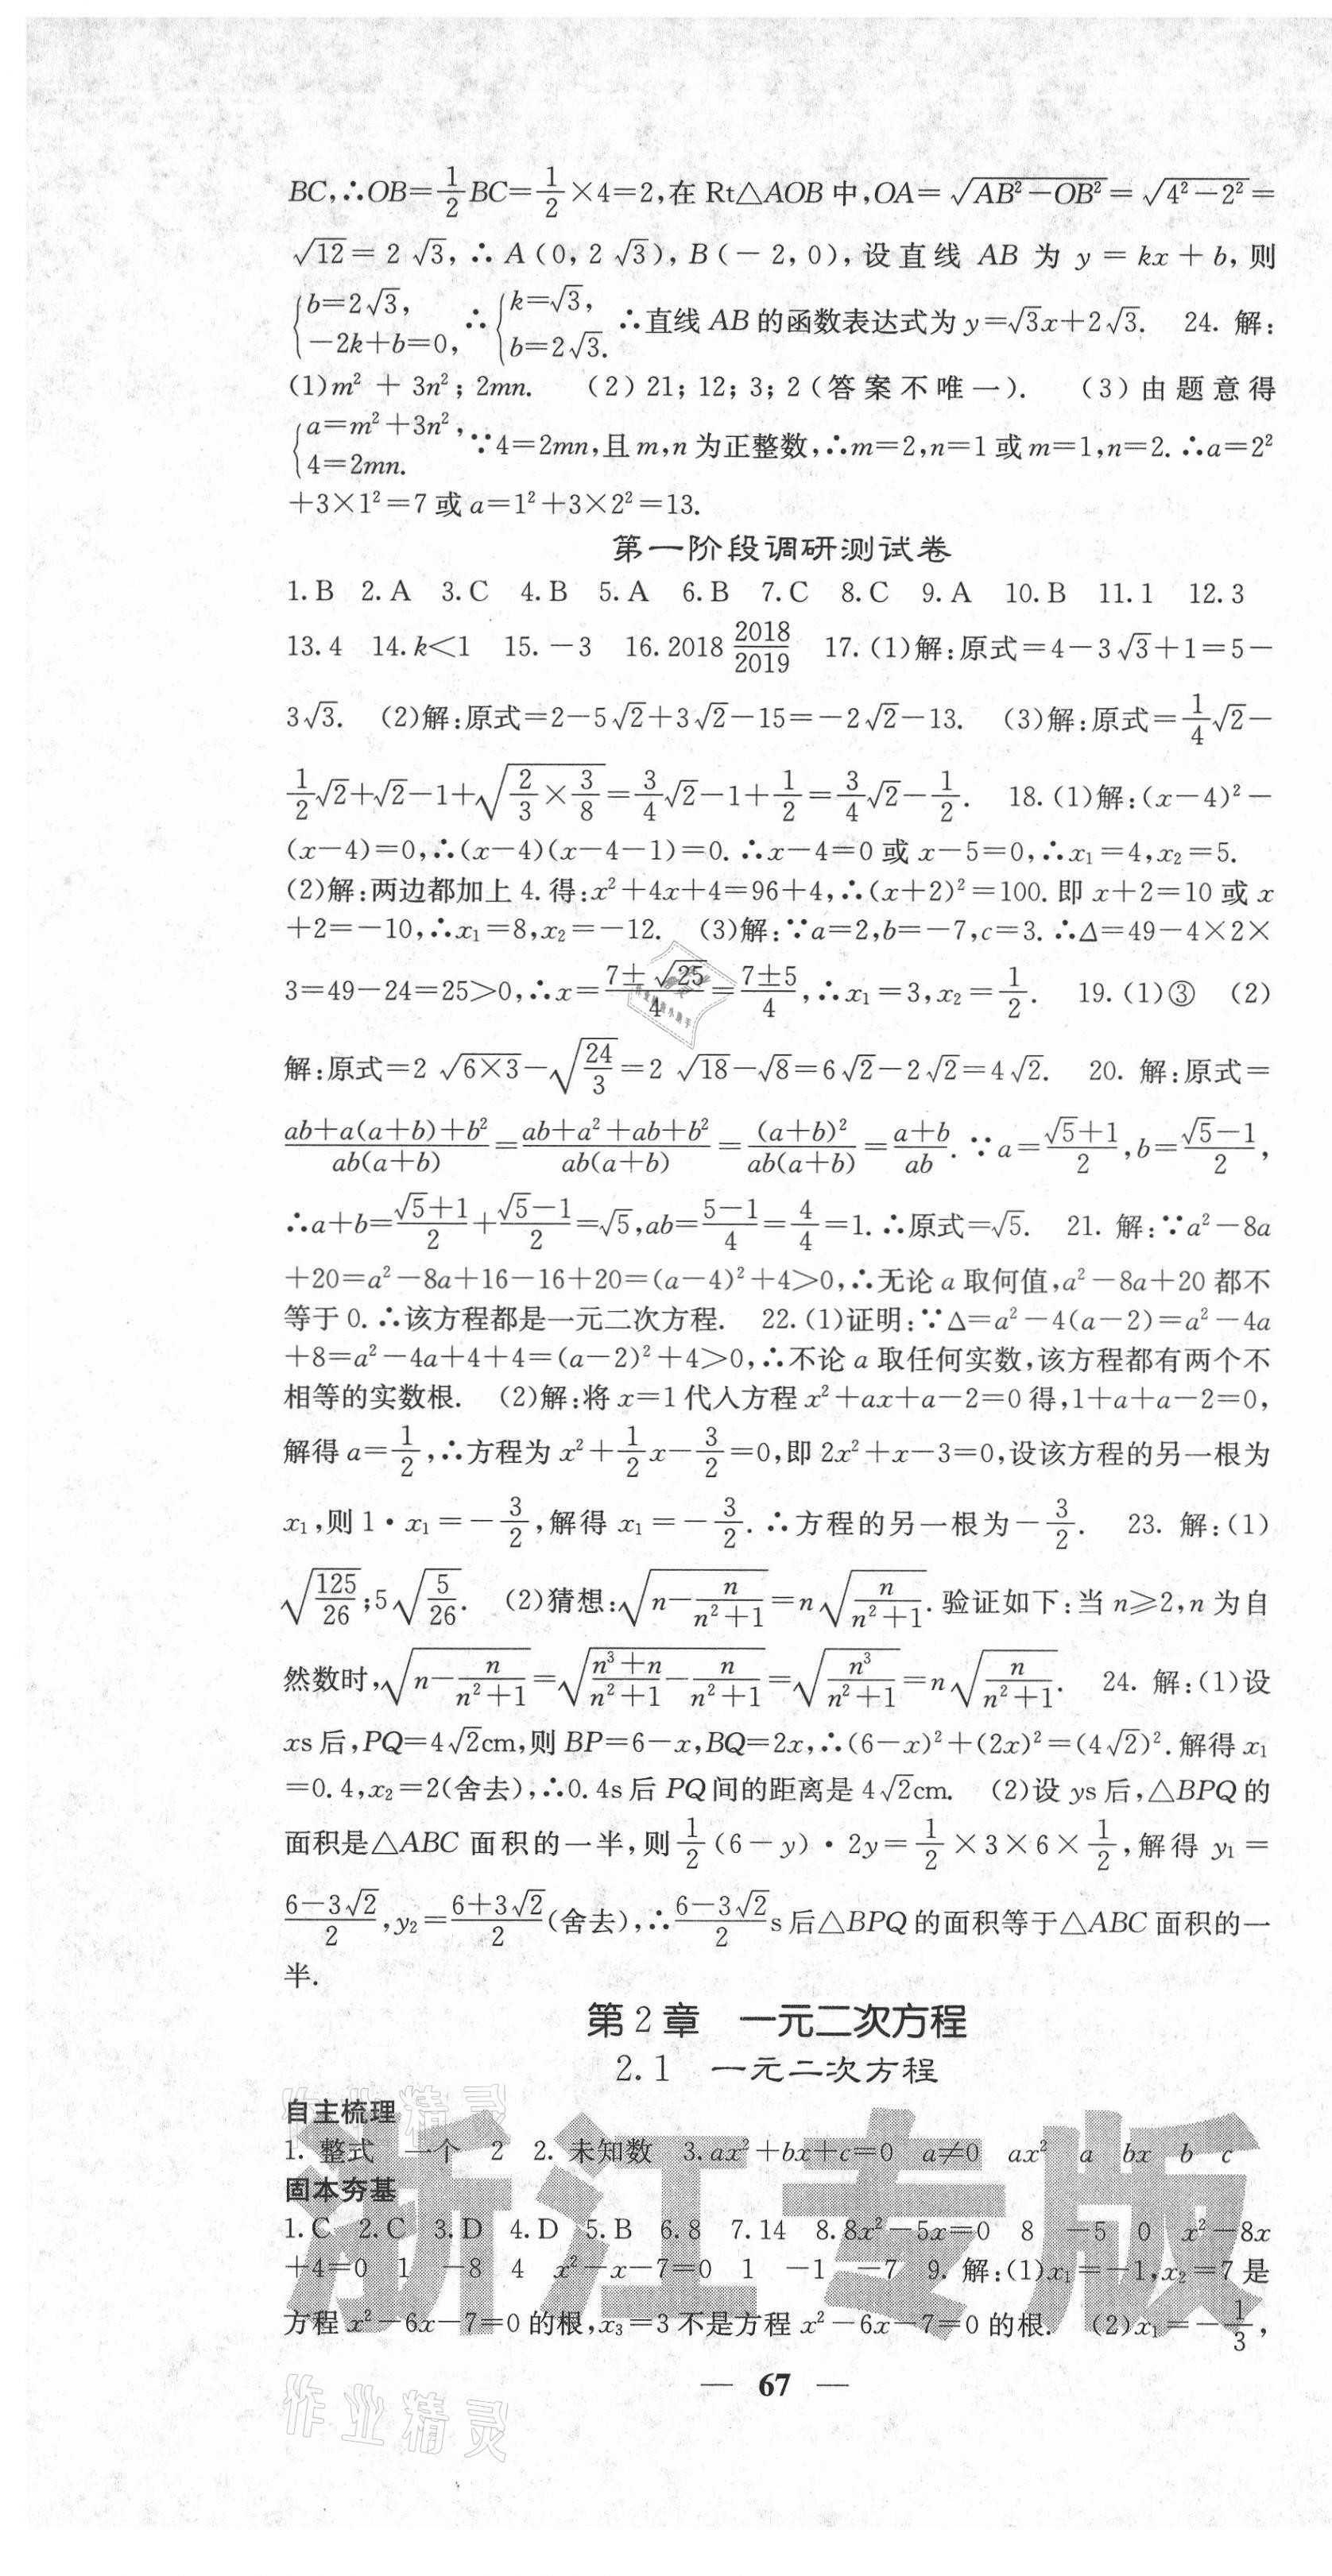 BC,∴OB=1/2 BC=1/2×4=2,在 Rt△AOB 中,OA=√(AB²-OB²)=√(4²-2²)=
√12=2√3,∴A(0,2√3),B(-2,0),设直线 AB 为 y=kx+b,则
{b=2√3, -2k+b=0, ∴{k=√3, b=2√3. ∴直线 AB 的函数表达式为 y=√3x+2√3. 24. 解:
(1)m²+3n²;2mn. (2)21;12;3;2(答案不唯一). (3)由题意得
{a=m²+3n², 4=2mn. ∵4=2mn,且 m,n 为正整数,∴m=2,n=1 或 m=1,n=2.∴a=2²
+3×1²=7 或 a=1²+3×2²=13.
第一阶段调研测试卷
1.B 2.A 3.C 4.B 5.A 6.B 7.C 8.C 9.A 10.B 11.1 12.3
13.4 14.k<1 15.-3 16.2018 2018/2019 17.(1)解:原式=4-3√3+1=5-
3√3. (2)解:原式=2-5√2+3√2-15=-2√2-13. (3)解:原式=1/4√2-
1/2√2+√2-1+√(2/3×3/8)=3/4√2-1+1/2=3/4√2-1/2. 18.(1)解:(x-4)²-
(x-4)=0,∴(x-4)(x-4-1)=0.∴x-4=0 或 x-5=0,∴x₁=4,x₂=5.
(2)解:两边都加上 4.得:x²+4x+4=96+4,∴(x+2)²=100.即 x+2=10 或 x
+2=-10,∴x₁=8,x₂=-12. (3)解:∵a=2,b=-7,c=3.∴Δ=49-4×2×
3=49-24=25>0,∴x=(7±√25)/4=(7±5)/4,∴x₁=3,x₂=1/2. 19.(1)③ (2)
解:原式=2√(6×3)-√(24/3)=2√18-√8=6√2-2√2=4√2. 20. 解:原式=
(ab+a(a+b)+b²)/(ab(a+b))=(ab+a²+ab+b²)/(ab(a+b))=(a+b)²/(ab(a+b))=(a+b)/ab.∵a=(√5+1)/2,b=(√5-1)/2,
∴a+b=(√5+1)/2+(√5-1)/2=√5,ab=(5-1)/4=4/4=1.∴原式=√5. 21. 解:∵a²-8a
+20=a²-8a+16-16+20=(a-4)²+4>0,∴无论 a 取何值,a²-8a+20 都不
等于 0.∴该方程都是一元二次方程. 22.(1)证明:∵Δ=a²-4(a-2)=a²-4a
+8=a²-4a+4+4=(a-2)²+4>0,∴不论 a 取任何实数,该方程都有两个不
相等的实数根. (2)解:将 x=1 代入方程 x²+ax+a-2=0 得,1+a+a-2=0,
解得 a=1/2,∴方程为 x²+1/2x-3/2=0,即 2x²+x-3=0,设该方程的另一根为
x₁,则 1·x₁=-3/2,解得 x₁=-3/2.∴方程的另一根为-3/2. 23. 解:(1)
√(125/26);5√(5/26). (2)猜想:√(n-n/(n²+1))=n√(n/(n²+1)).验证如下:当 n≥2,n 为自
然数时,√(n-n/(n²+1))=√((n³+n)/(n²+1)-n/(n²+1))=√(n³/(n²+1))=n√(n/(n²+1)). 24. 解:(1)设
xs 后,PQ=4√2cm,则 BP=6-x,BQ=2x,∴(6-x)²+(2x)²=(4√2)².解得 x₁
=0.4,x₂=2(舍去),∴0.4s 后 PQ 间的距离是 4√2cm. (2)设 ys 后,△BPQ 的
面积是△ABC 面积的一半,则1/2(6-y)·2y=1/2×3×6×1/2,解得 y₁=
(6-3√2)/2,y₂=(6+3√2)/2(舍去),∴(6-3√2)/2 s 后△BPQ 的面积等于△ABC 面积的一
半.
第 2 章 一元二次方程
2.1 一元二次方程
自主梳理
1. 整式 一个 2 2. 未知数 3.ax²+bx+c=0 a≠0 ax² a bx b c
固本夯基
1.C 2.C 3.D 4.D 5.B 6.8 7.14 8.8x²-5x=0 8 -5 0 x²-8x
+4=0 1 -8 4 x²-x-7=0 1 -1 -7 9. 解:(1)x₁=-1,x₂=7 是
方程 x²-6x-7=0 的根,x₃=3 不是方程 x²-6x-7=0 的根. (2)x₁=-1/3,
— 67 —
浙江专版
作业精灵
作业精灵